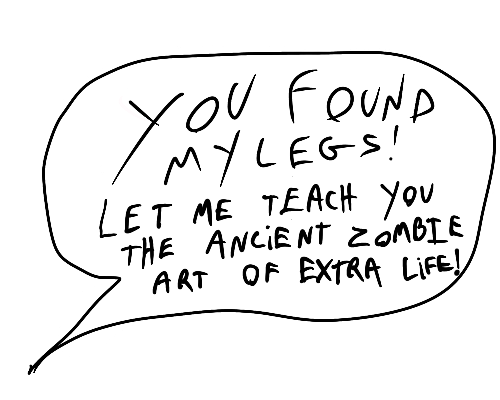 YOU FOUND
MY LEGS!
LET ME TEACH YOU
THE ANCiENT ZOMBIE
ART OF EXTRA LiFE!